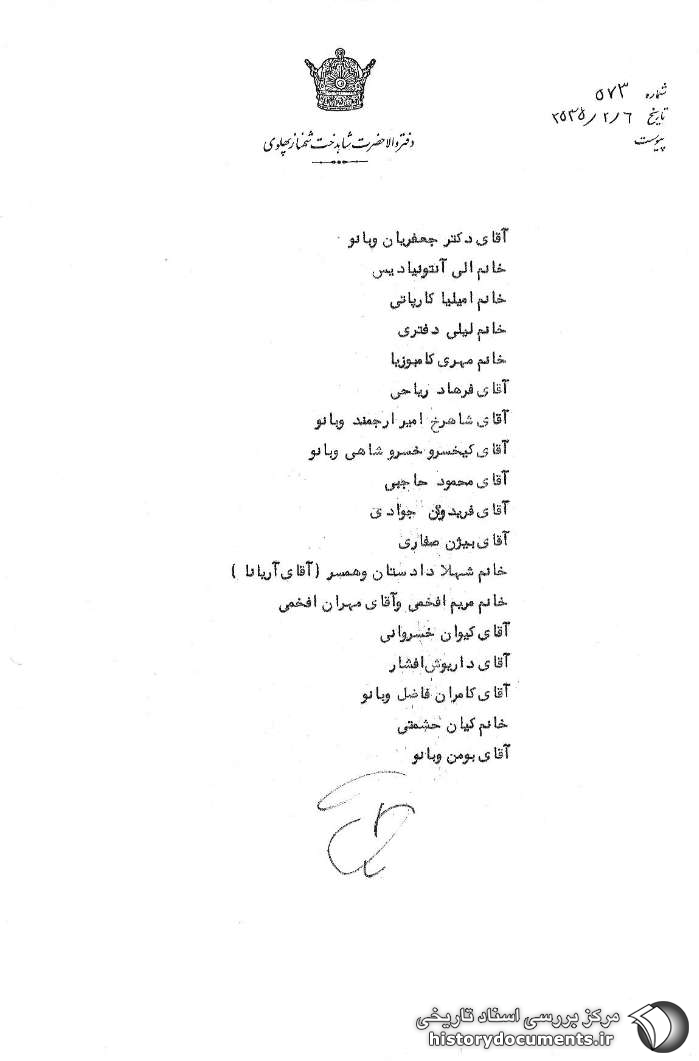 شماره ۵۷۳
تاریخ ۲۵۳۵/۲/۶
پیوست
دفتر والاحضرت شاهدخت شهناز پهلوی
آقای دکتر جعفریان وبانو
خانم الی آنتونیادیس
خانم امیلیا کارپاتی
خانم لیلی دفتری
خانم مهری کامبوزیا
آقای فرهاد ریاحی
آقای شاهرخ امیر ارجمند وبانو
آقای کیخسرو خسرو شاهی وبانو
آقای محمود حاجبی
آقای فریدون جوادی
آقای بیژن صفاری
خانم شهلا دادستان وهمسر (آقای آریانا)
خانم مریم افخمی وآقای مهران افخمی
آقای کیوان خسروانی
آقای داریوش افشار
آقای کامران فاضل وبانو
خانم کیان حشمتی
آقای بومن وبانو
مرکز بررسی اسناد تاریخی
historydocuments.ir